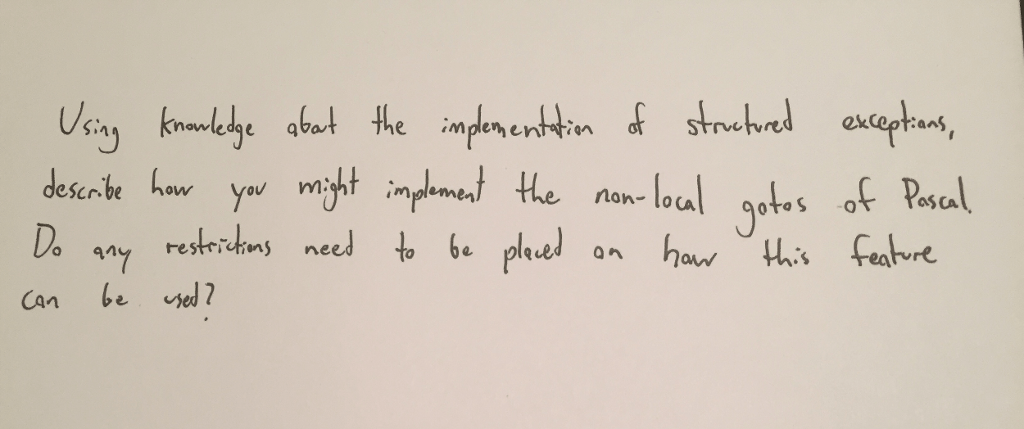 Using knowledge about the implementation of structured exceptions,
describe how you might implement the non-local gotos of Pascal.
Do any restrictions need to be placed on how this feature
can be used?